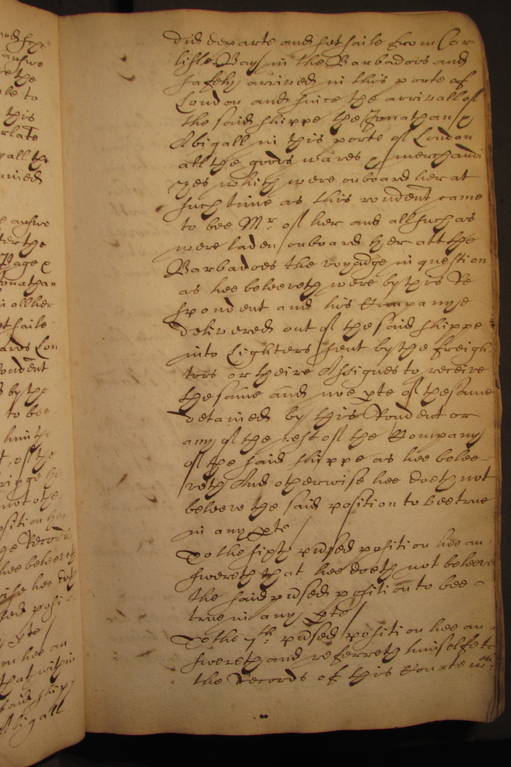 did departe and set saile from Car
lisle Bay in the Barbadoes and
safely arived in this porte of
London and since the arrivall of
the said shippe the Jonathan &
Abigall in this porte of London
all the goods wares & merchandi
zes which were onboard her at
such time as this rondent came
to bee Mr. of her and all such as
were laden onboard her att the
Barbadoes the voyadge in question
as hee beleeveth were by this Re
spondent and his Companye
delivered out of the said shippe
into Lighters sent by the freigh
tors or theire Assignes to receive
the same and noe pte of the same
detained by this Rondent or
any of the rest of the Company
of the said shippe as hee belee-
veth And otherwise hee doeth not
beleeve the said position to bee true
in any pte
To the sixth position hee an
swereth that hee doeth not beleeve
the said position to bee
true in any pte
To the 7th position hee an
swereth and referreth himselfe to
the Records of this Courte
gall the
this
answe
ter the
Page &
Jonathan
set saile
Rondent
s by the
to bee
of the
position
hee beleeveth
pte
hee an
that
Abigall